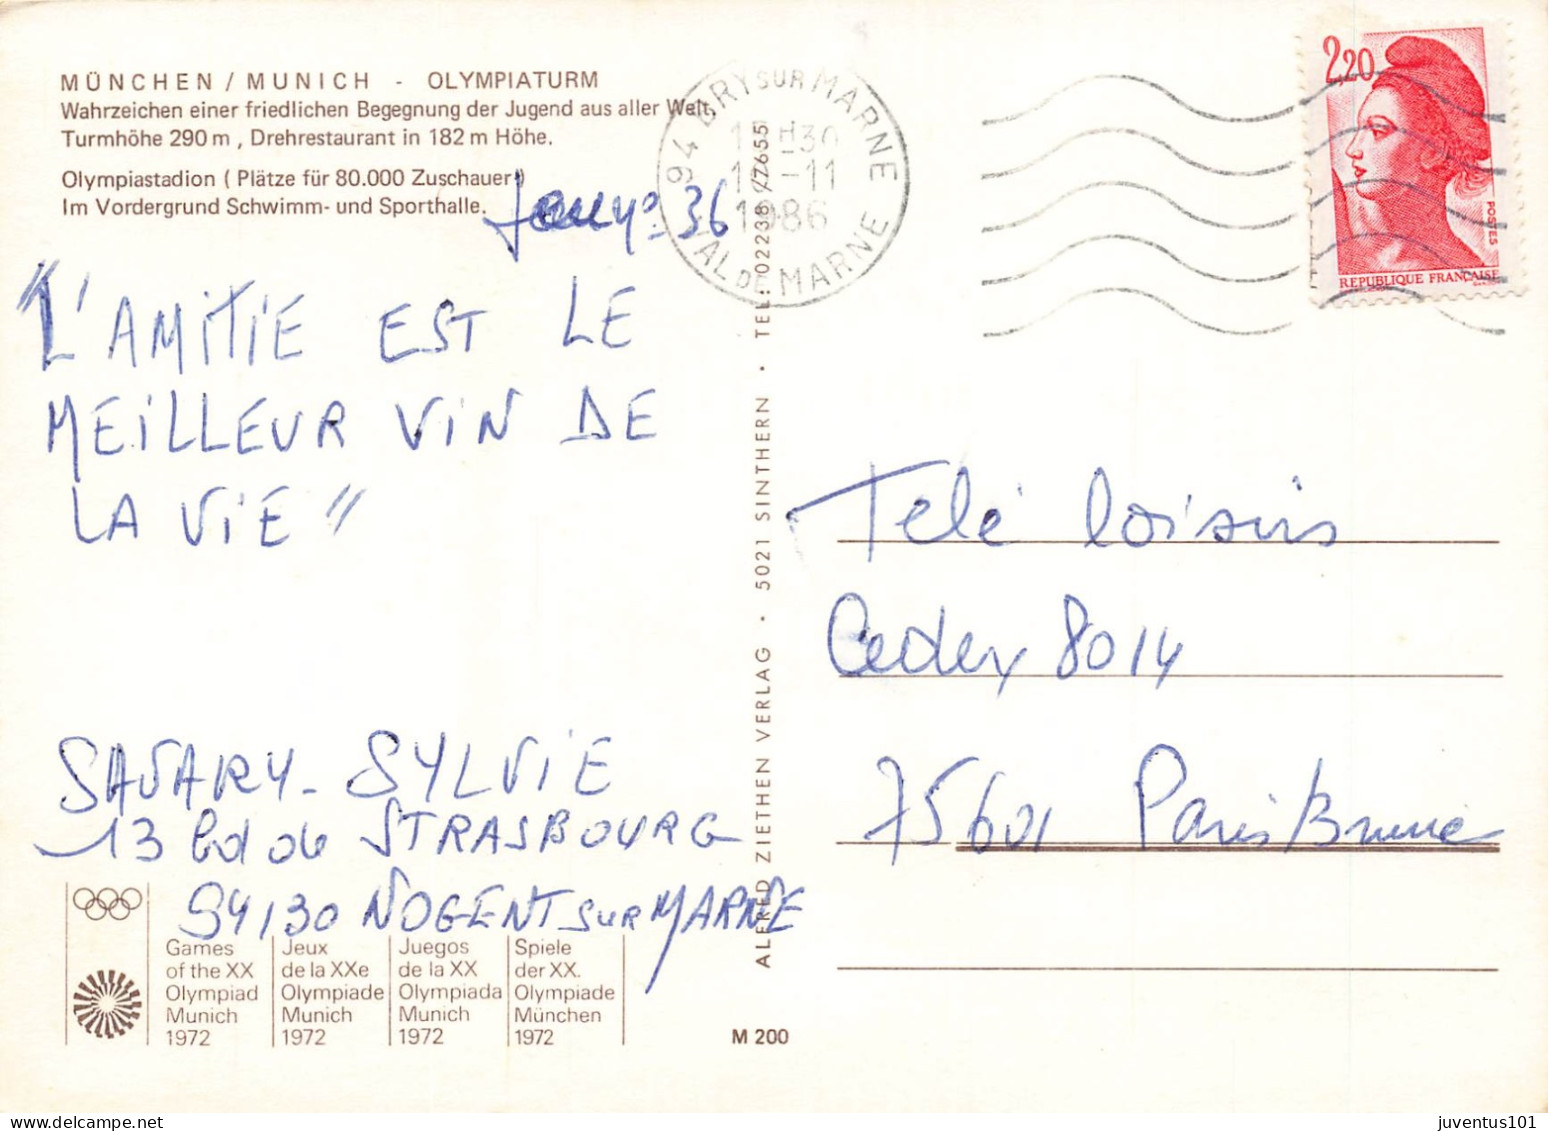 MÜNCHEN / MUNICH - OLYMPIATURM
Wahrzeichen einer friedlichen Begegnung der Jugend aus aller Welt.
Turmhöhe 290 m , Drehrestaurant in 182 m Höhe.
Olympiastadion ( Plätze für 80.000 Zuschauer )
Im Vordergrund Schwimm- und Sporthalle.
36
"L'AMITIE EST LE
MEILLEUR VIN DE
LA VIE"
SAVARY - SYLVIE
13 Bd de STRASBOURG
94130 NOGENT SUR MARNE
Games
of the XX
Olympiad
Munich
1972
Jeux
de la XXe
Olympiade
Munich
1972
Juegos
de la XX
Olympiada
Munich
1972
Spiele
der XX.
Olympiade
München
1972
M 200
ALFRED ZIETHEN VERLAG · 5021 SINTHERN · TEL. 02238 /
94 BRY SUR MARNE
-11
1986
VAL DE MARNE
2,20
POSTES
REPUBLIQUE FRANÇAISE
Télé loisirs
Cedex 8014
75601 Paris Brune
juventus101